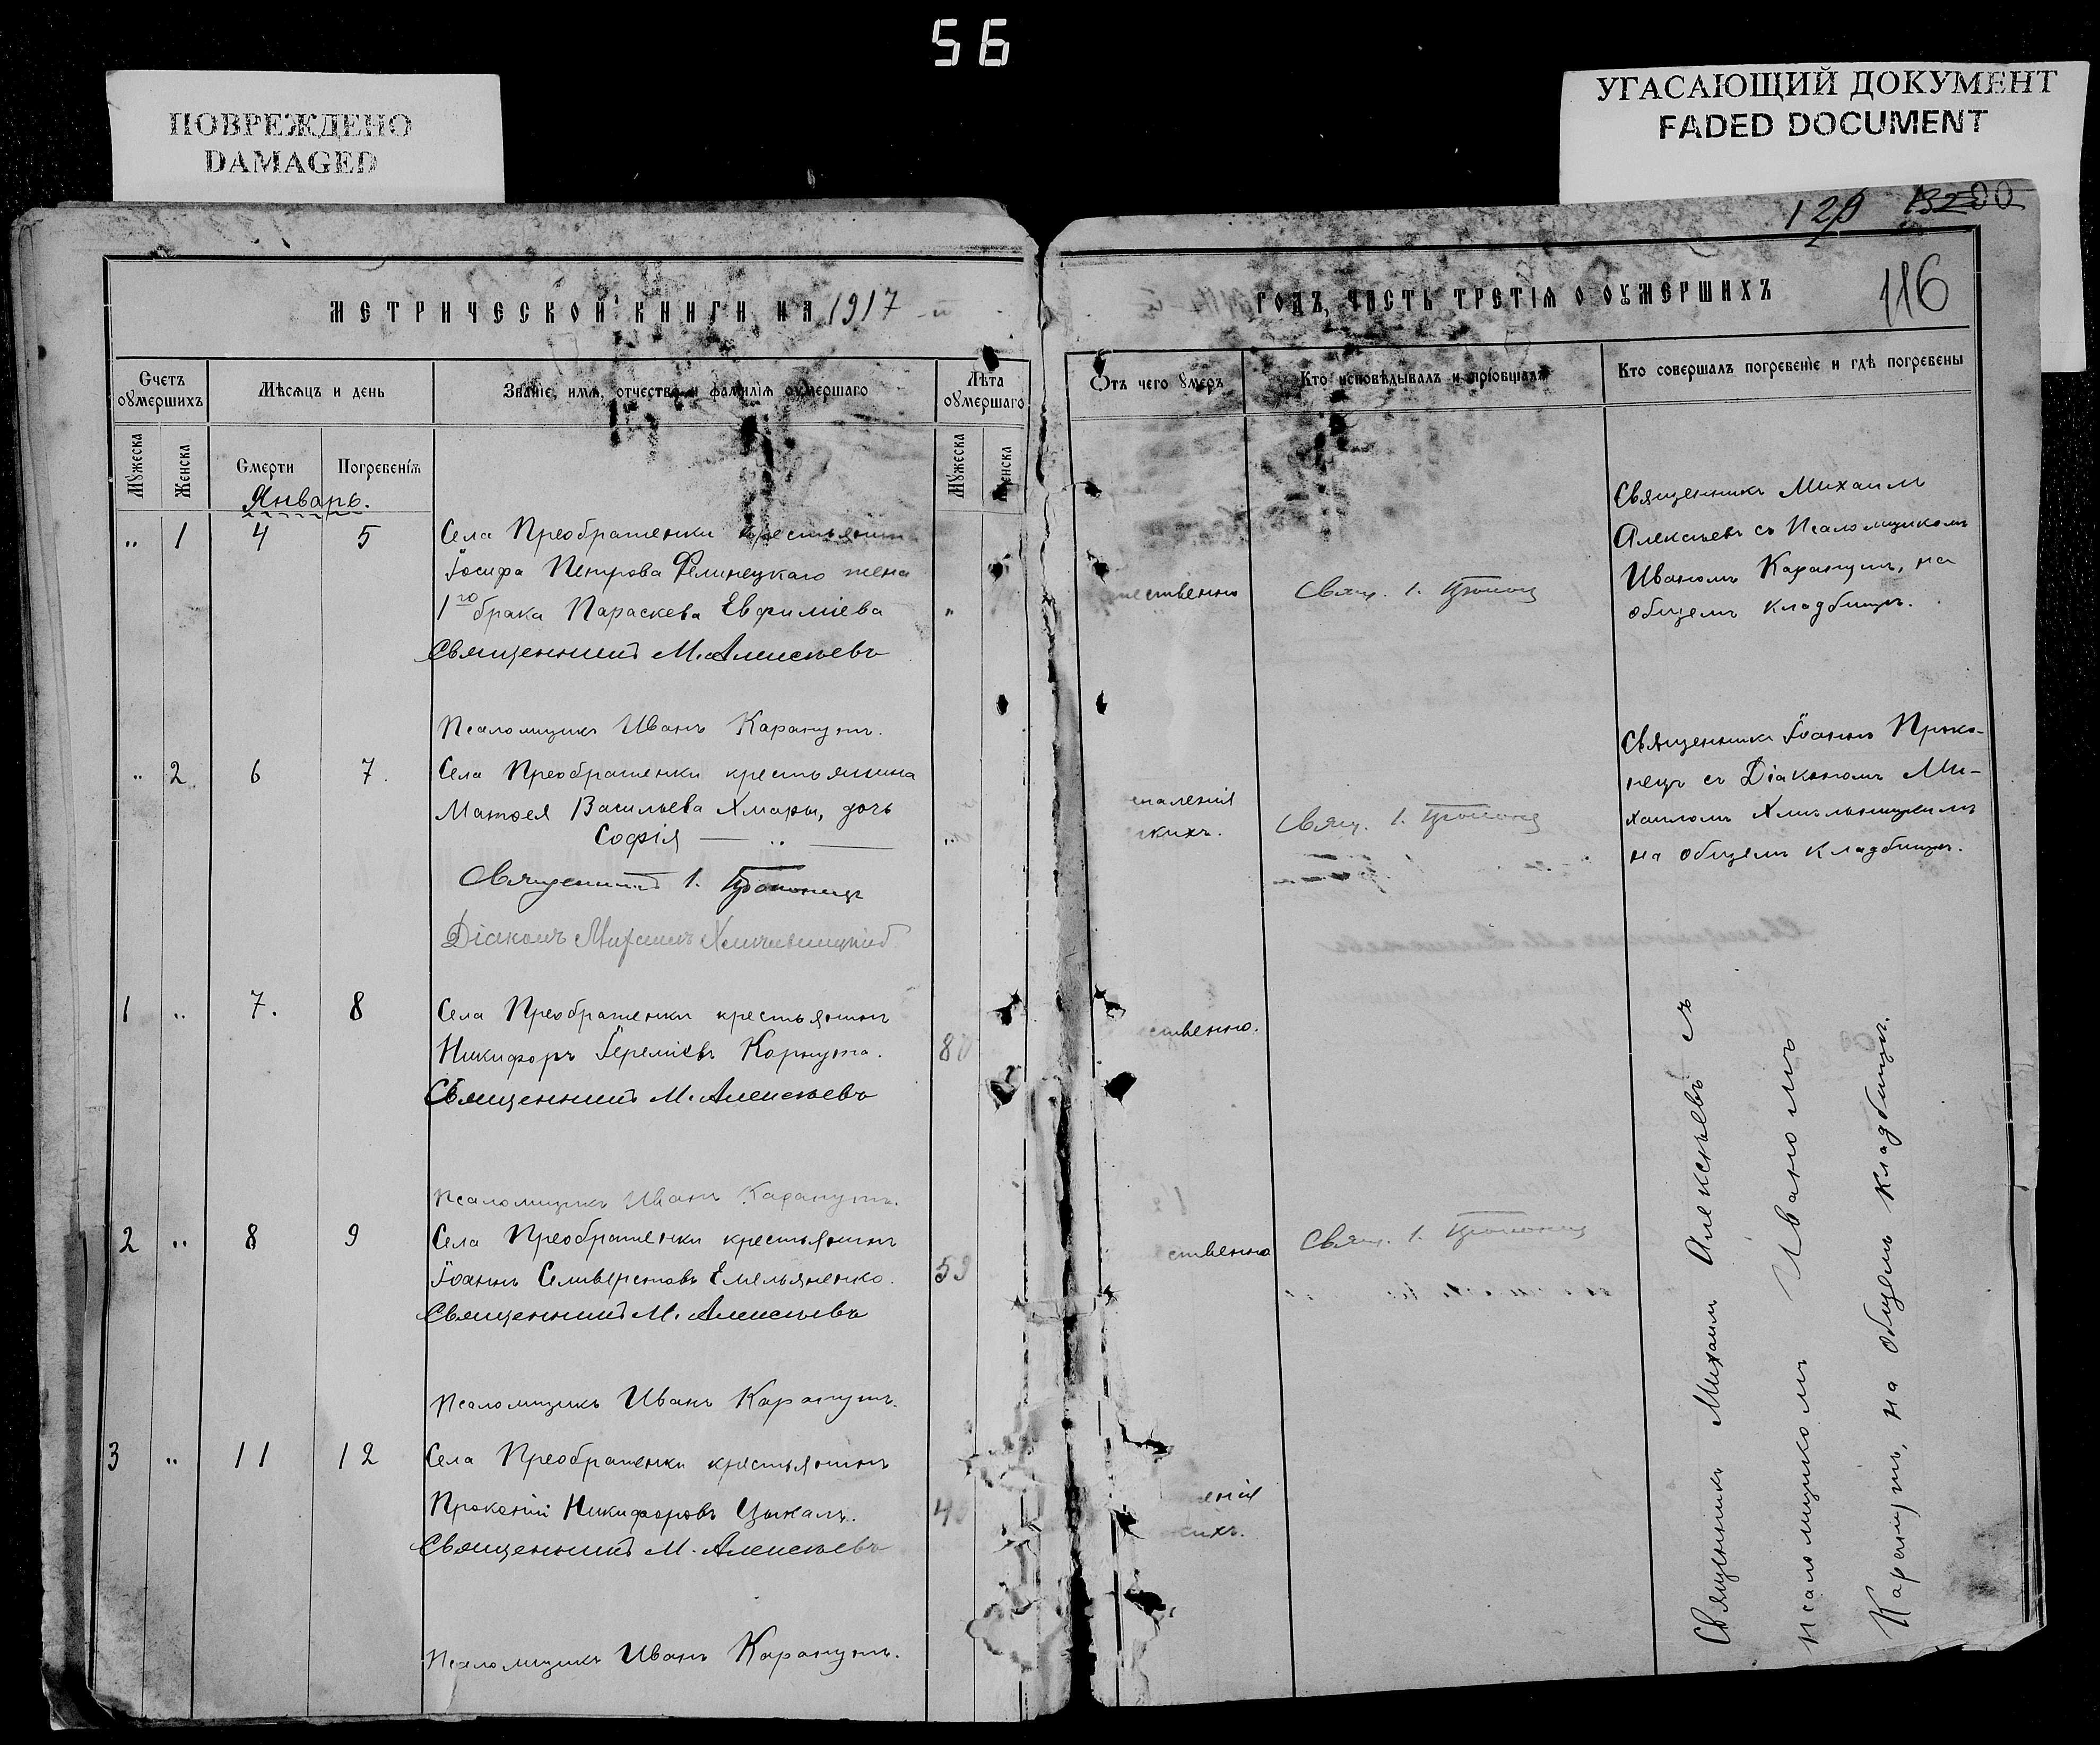 56
ПОВРЕЖДЕНО
DAMAGED
УГАСАЮЩИЙ ДОКУМЕНТ
FADED DOCUMENT
116
МЕТРИЧЕСКОЙ КНИГИ НА 1917
ГОДЪ, ЧАСТЬ ТРЕТІЯ О ОУМЕРШИХЪ
Счетъ оумершихъ
Мѣсяцъ и день
Званіе, имя, отчество и фамилія оумершаго
Лѣта оумершаго
Отъ чего умеръ
Кто исповѣдывалъ и пріобщалъ
Кто совершалъ погребеніе и гдѣ погребены
Мужеска
Женска
Смерти
Погребенія
Мужеска
Женска
Январь.
„ 1 4 5
Села Преображенки крестьянина
Іосифа Петрова жена
1го брака Параскева Евфиміева
„
ественно
Свящ. І.
Священникъ Михаилъ
Алексѣевъ съ Псаломщикомъ
Иваномъ Карапутъ, на
общемъ кладбищѣ.
Священникъ М. Алексѣевъ
Псаломщикъ Иванъ Карапутъ.
„ 2 6 7.
Села Преображенки крестьянина
Матѳея Васильева Хмары, дочь
Софія — „ —
„
спаленія
гкихъ.
Свящ. І.
Священникъ Іоаннъ Проко-
пецъ съ Діакономъ Ми-
хаиломъ Хмѣльницкимъ
на общемъ кладбищѣ.
Священникъ І.
Діаконъ Михаилъ Хмѣльницкій
1 „ 7. 8
Села Преображенки крестьянинъ
Никифоръ Іереміевъ Корнута.
80
ственно.
Священникъ М. Алексѣевъ
Псаломщикъ Иванъ Карапутъ.
2 „ 8 9
Села Преображенки крестьянинъ
Іоаннъ Селиверстовъ Емельяненко.
59
ственно
Свящ. І.
Священникъ М. Алексѣевъ
Псаломщикъ Иванъ Карапутъ.
3 „ 11 12
Села Преображенки крестьянинъ
Прокопій Никифоровъ Цыкалъ.
4
енія
кихъ.
Священникъ М. Алексѣевъ
Псаломщикъ Иванъ Карапутъ.
Священникъ Михаилъ Алексѣевъ съ
псаломщикомъ Иваномъ
Карапутъ, на общемъ кладбищѣ.